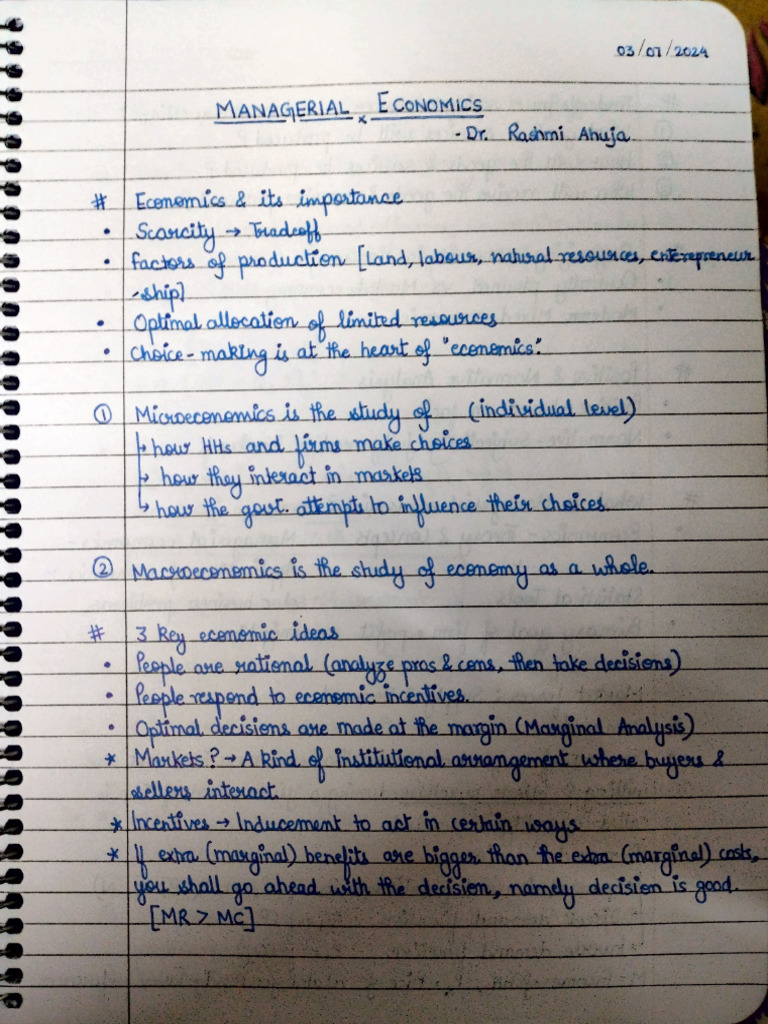 03/07/2024
MANAGERIAL ECONOMICS
- Dr. Rashmi Ahuja
# Economics & its importance
• Scarcity → Tradeoff
• Factors of production [Land, labour, natural resources, enterepreneur
-ship]
• Optimal allocation of limited resources
• Choice-making is at the heart of "economics".
① Microeconomics is the study of (individual level)
↳ how HHs and firms make choices
↳ how they interact in markets
↳ how the govt. attempts to influence their choices.
② Macroeconomics is the study of economy as a whole.
# 3 Key economic ideas
• People are rational (analyze pros & cons, then take decisions)
• People respond to economic incentives.
• Optimal decisions are made at the margin (Marginal Analysis)
* Markets? → A kind of institutional arrangement where buyers &
sellers interact.
* Incentives → Inducement to act in certain ways
* If extra (marginal) benefits are bigger than the extra (marginal) costs,
you shall go ahead with the decision, namely decision is good.
[MR > MC]